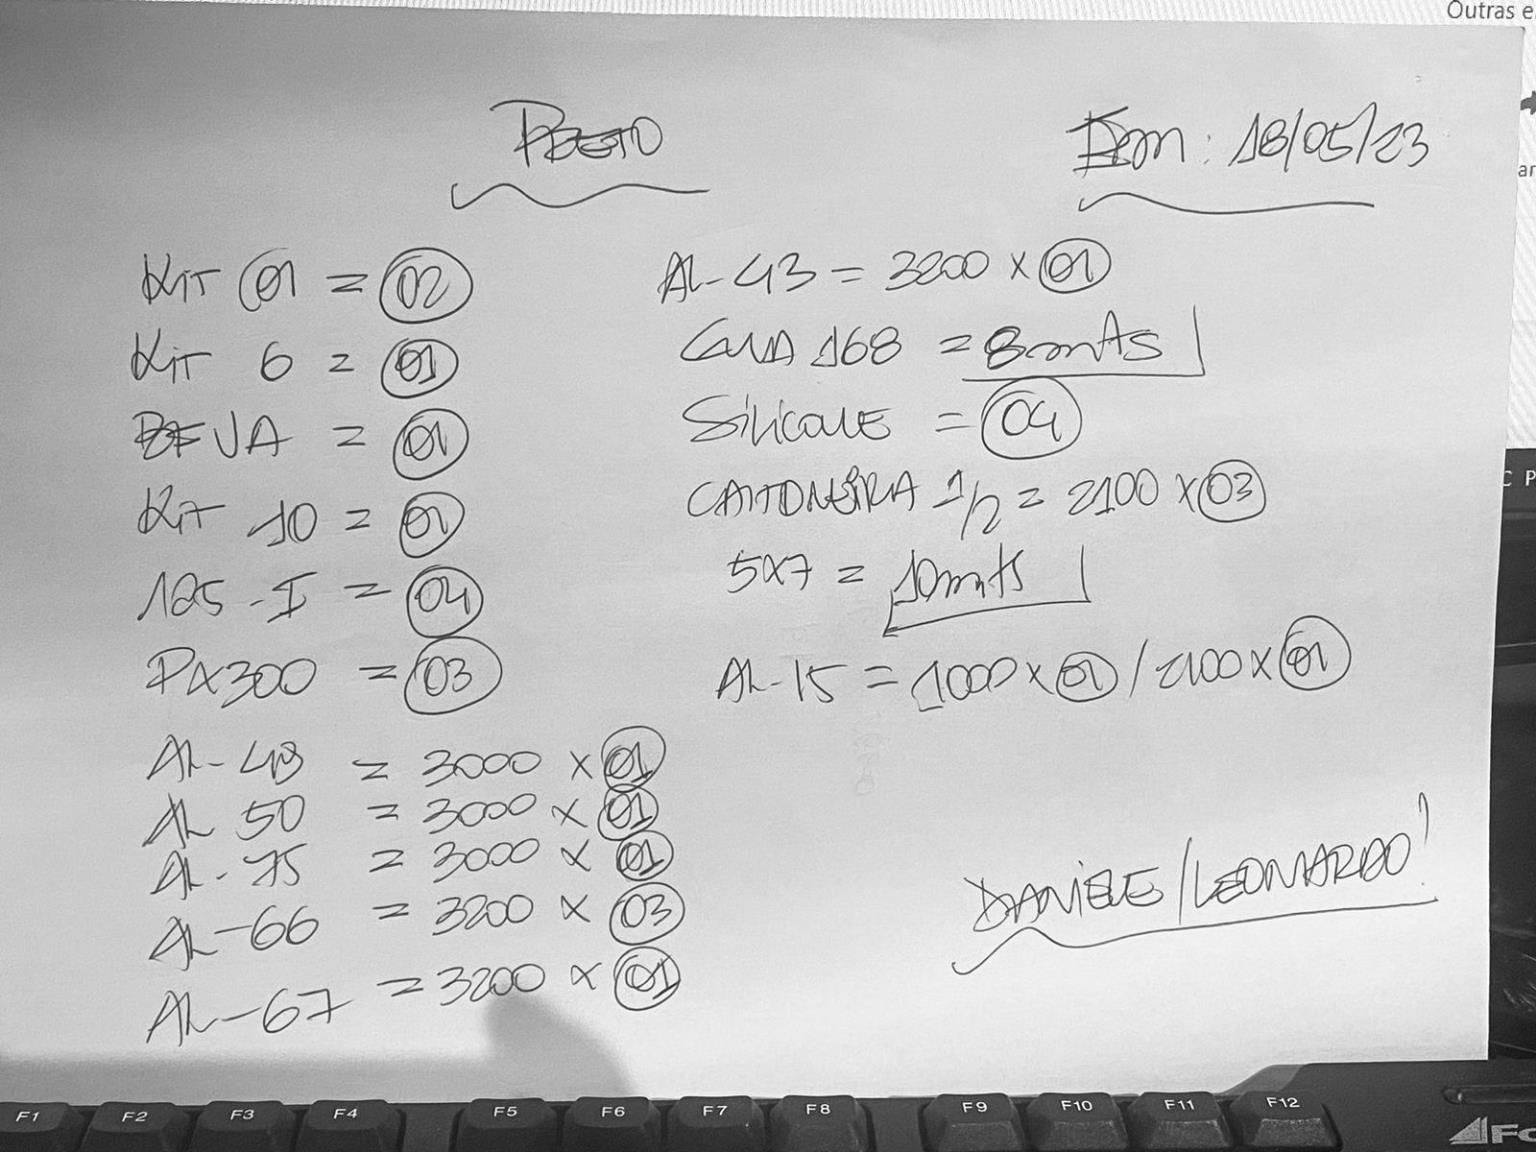 Outras e
PRETO
Em: 18/05/23
ar
KIT 01 = 02
KIT 6 = 01
BEVA = 01
KIT 10 = 01
125-I = 04
PX300 = 03
AL-48 = 3000 x 01
AL 50 = 3000 x 01
AL-75 = 3000 x 01
AL-66 = 3200 x 03
AL-67 = 3200 x 01
AL-43 = 3200 x 01
168 = 8mts
SILICONE = 04
CANTONEIRA 1/2 = 2100 x 03
5x7 = 10mts
AL-15 = 1000 x 01 / 2100 x 01
DANIELE/LEONARDO
F1 F2 F3 F4 F5 F6 F7 F8 F9 F10 F11 F12